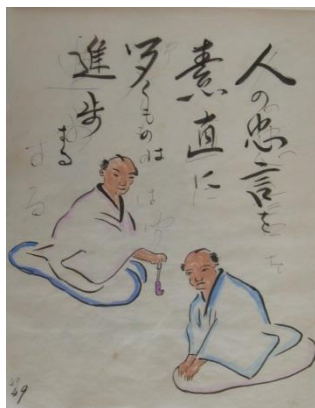 人の忠言を
素直に
聞くものは
進歩する
49